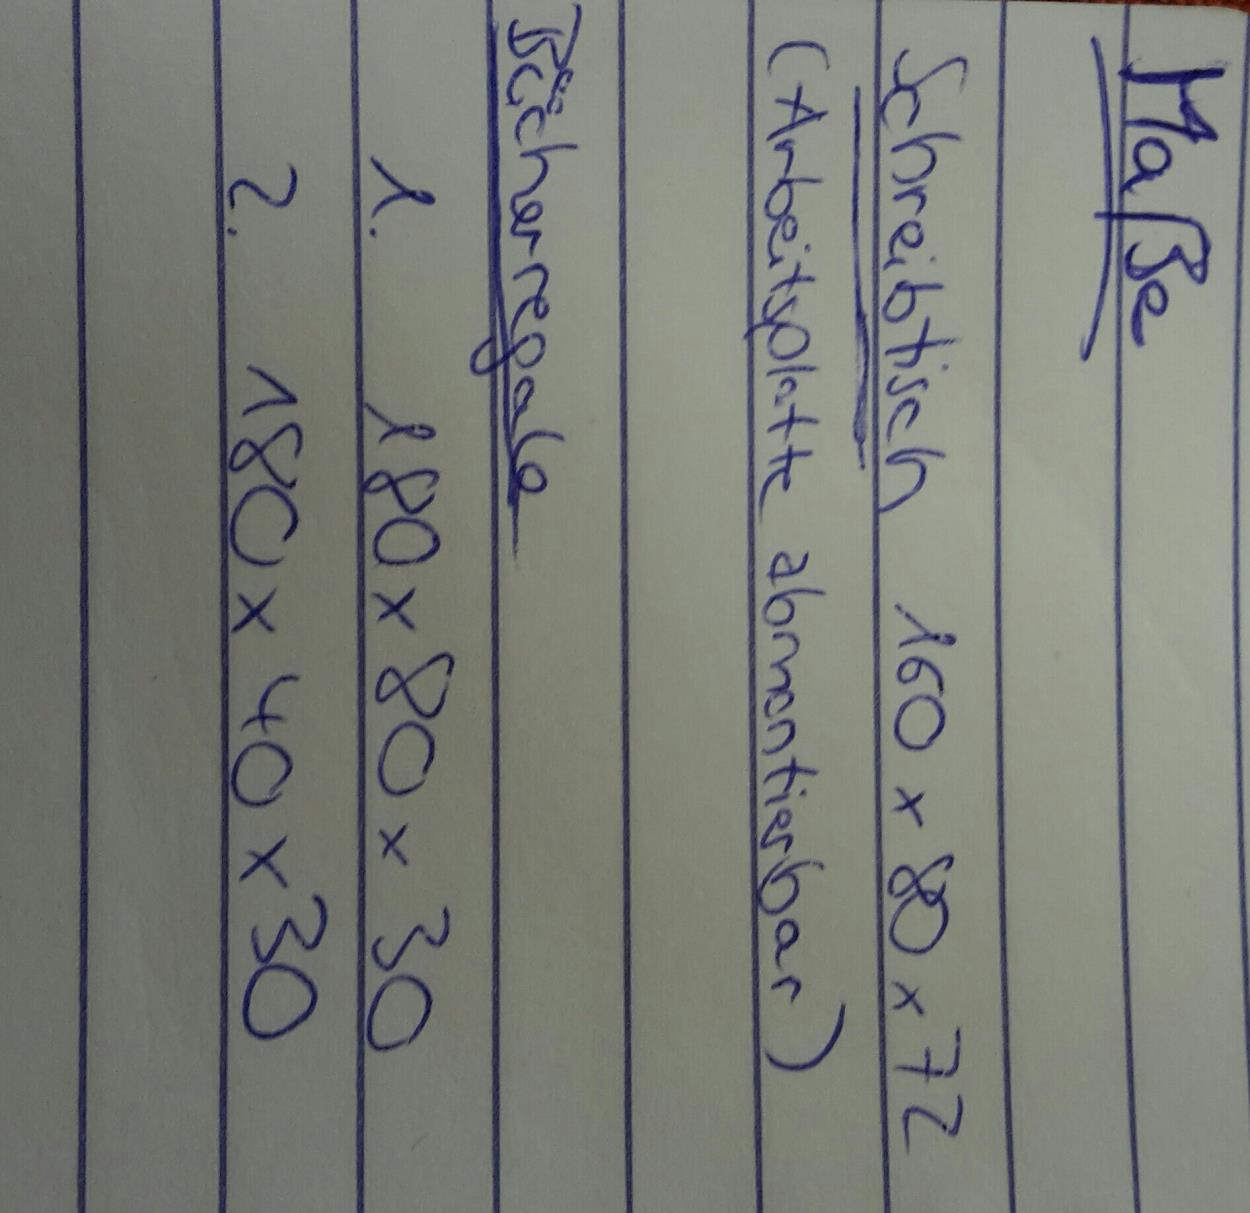 Maße
Schreibtisch 160 x 80 x 72
(Arbeitsplatte abmontierbar)
Bücherregale
1. 180 x 80 x 30
2. 180 x 40 x 30